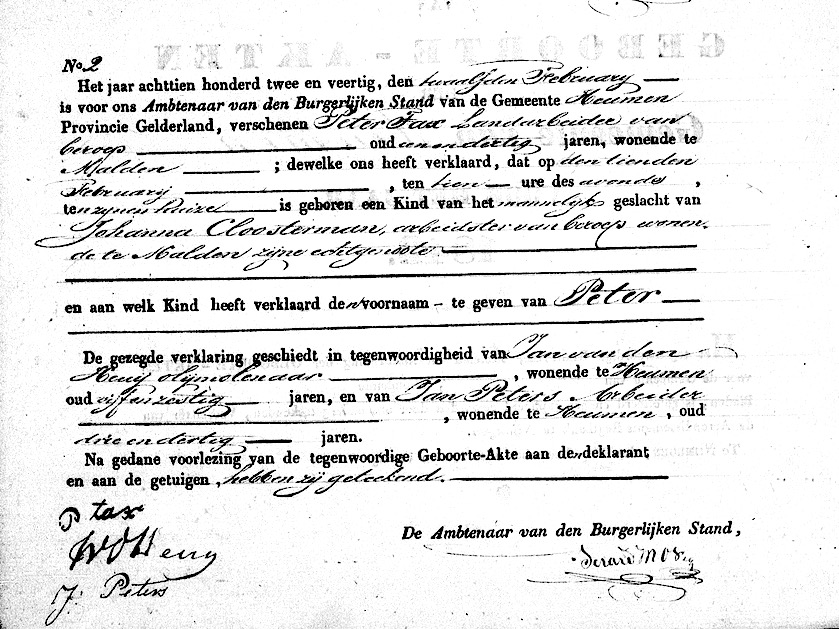 No. 2
Het jaar achttien honderd twee en veertig, den twaalfden February
is voor ons Ambtenaar van den Burgerlijken Stand van de Gemeente Heumen
Provincie Gelderland, verschenen Peter Tax Landarbeider van
beroep oud een en dertig jaren, wonende te
Malden ; dewelke ons heeft verklaard, dat op den tienden
February , ten tien ure des avonds ,
ten zynen huize is geboren een Kind van het mannelyk geslacht van
Johanna Cloosterman, arbeidster van beroep wonen-
de te Malden zyne echtgenoote
en aan welk Kind heeft verklaard den voornaam te geven van Peter
De gezegde verklaring geschiedt in tegenwoordigheid van Jan van den
Heuy olymolenaar , wonende te Heumen
oud vyf en zestig jaren, en van Jan Peters Arbeider
, wonende te Heumen , oud
drie en dertig jaren.
Na gedane voorlezing van de tegenwoordige Geboorte-Akte aan den deklarant
en aan de getuigen, hebben zy geteekend.
P tax
De Ambtenaar van den Burgerlijken Stand,
J: Peters